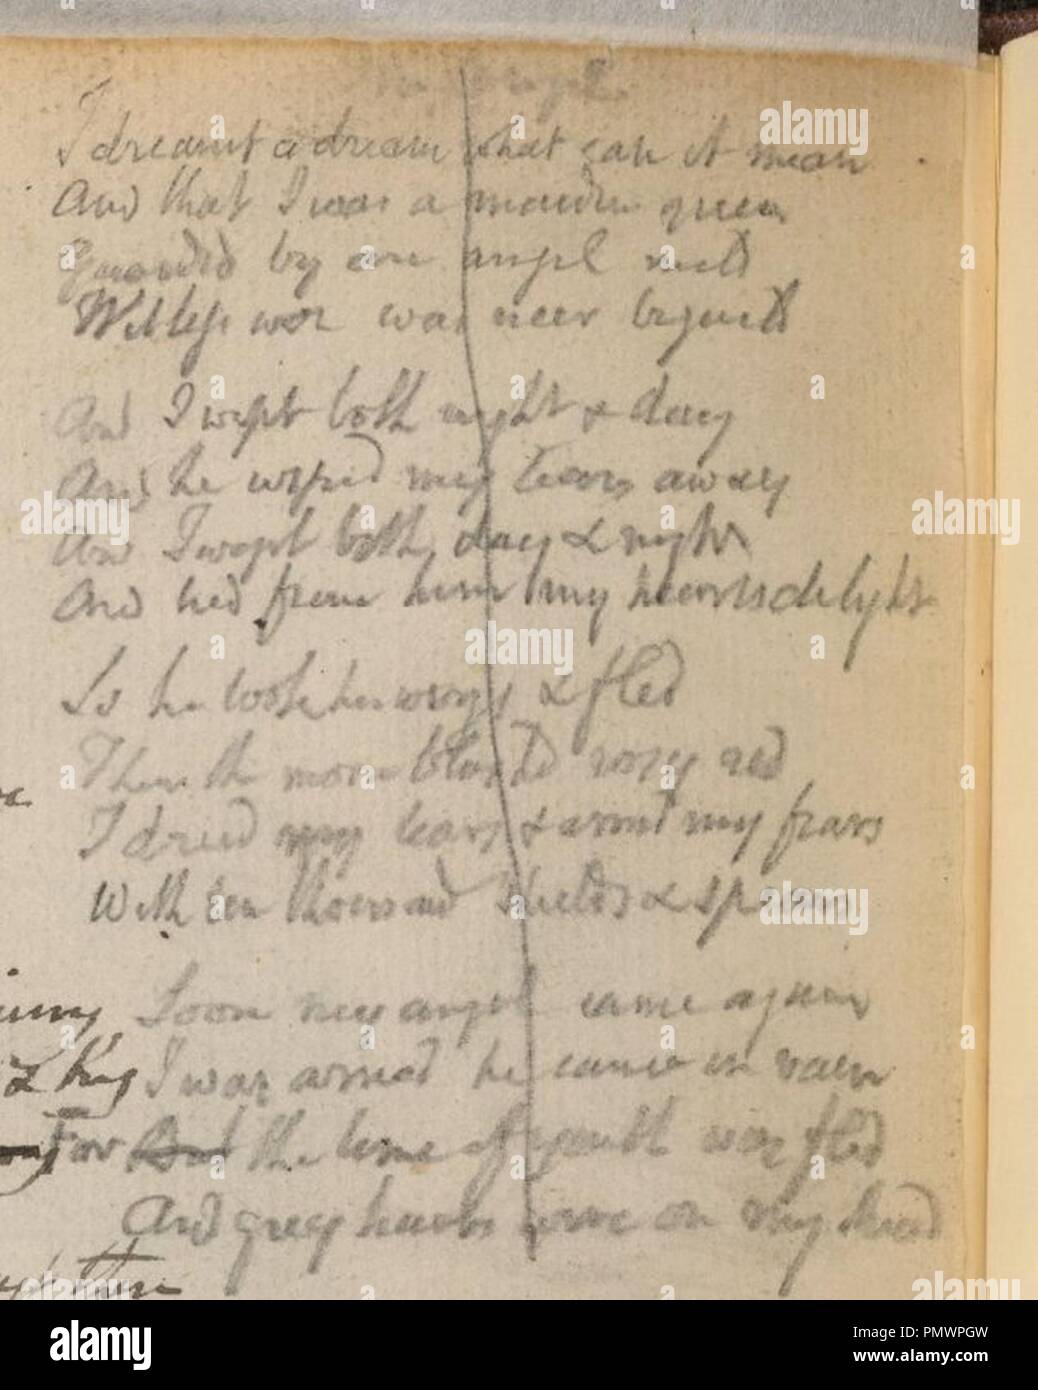 The Angel
I dreamt a dream what can it mean
And that I was a maiden queen
Guarded by an angel mild
Witless woe was neer beguild
And I wept both night & day
And he wiped my tears away
And I wept both day & night
And hid from him my hearts delight
So he took his wings & fled
Then the morn blushd rosy red
I dried my tears & armd my fears
With ten thousand shields & spears
Soon my angel came again
I was armd he came in vain
For But the time of youth was fled
And grey hairs were on my head
& King
then
alamy
Image ID: PMWPGW
www.alamy.com